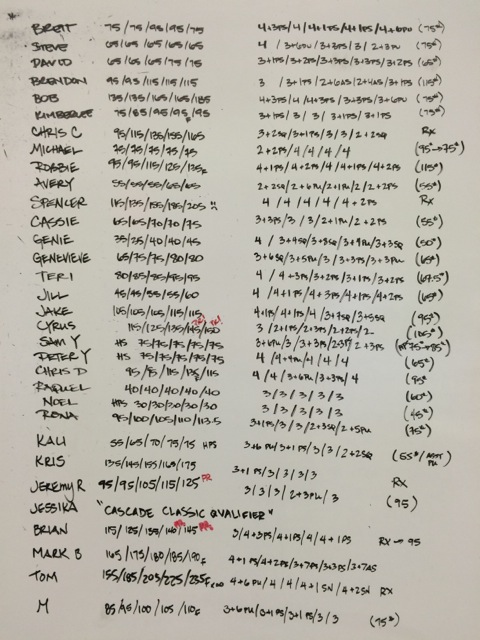 BRETT 75/75/95/95/75 4+3PS/4/4+1PS/4+1PS/4+6PU (75#)
STEVE 65/65/65/65/65 4 / 3+6PU/3+3PS/3/2+3PU (75#)
DAVID 65/65/65/75/75 3+1PS/3+2PS/3+3PS/3+3PS/3+2PS (65#)
BRENDON 95/95/115/115/115 3 /3+1PS/2+6AS/2+4AS/3+1PS (115#)
BOB 135/135/165/165/185 4+3PS/4/4+3PS/3+3PS/3+6PU (75#)
KIMBERLEE 75/85/95/95/95 3+1PS/3/3/3+1PS/3+1PS (75#)
CHRIS C 95/115/135/155/165 3+2SQ/3+1PS/3/3/2+2SQ RX
MICHAEL 75/75/75/75/75 2+2PS/4/4/4/4 (95#→75#)
ROBBIE 95/95/115/125/135F 4+1PS/4+2PS/4/4+1PS/4+2PS (115#)
AVERY 55/55/55/65/65 2+2SQ/2+6PU/2+1PU/2/2+2PS (55#)
SPENCER 115/135/155/185/205 4/4/4/4/4+2PS RX
CASSIE 65/65/70/70/75 3+3PS/3/3/2+1PU/2+2PS (55#)
GENIE 35/25/40/40/45 4/3+4SQ/3+3SQ/3+4PU/3+3SQ (50#)
GENEVIEVE 65/75/75/80/80 3+6SQ/3+5PU/3/3+3PS/3+3PU (65#)
TERI 80/85/95/95/95 4/4+3PS/3+2PS/3+1PS/3+2PS (67.5#)
JILL 45/45/55/55/60 4/4+1PS/4+3PS/4+1PS/4+2PS (65#)
JAKE 105/105/105/115/115 4+1PS/4+1PS/4/3+7SQ/3+5SQ (95#)
CYRUS 115/125/135/145/150 PR! PR! 3/2+1PS/2+3PS/2+2PS/2 (105#)
SAM Y HS 75/75/75/75/75
PETER Y HS 75/75/75/75/75 4/4+4PU/4/4/4 (65#)
CHRIS D 95/95/115/115/115 4/4/3+6PU/3+3PS/4 (95#)
RAQUEL 40/40/40/40/40 3/3/3/3/3 (60#)
NOEL HPS 30/30/30/30/30 3/3/3/3/3 (45#)
RONA 95/100/105/110/113.5 3+1PS/3/3/2+3SQ/2+5PU (75#)
KALI 55/65/70/75/75 HPS 3+6PU/3+1PS/3/3/2+2SQ (55#/ASST PU)
KRIS 135/145/155/165/175 3+1PS/3/3/3/3
JEREMY R 95/95/105/115/125 PR 3/3/3/2+3PU/3 RX (95)
JESSIKA "CASCADE CLASSIC QUALIFIER"
BRIAN 115/125/135/140/145 PR PR 3/4+3PS/4+1PS/4/4+1PS RX→95
MARK B 165/175/180/185/190F 4+1PS/4+2PS/3+7PS/3+3PS/3+7AS
TOM 155/185/205/225/235F 4+6PU/4/4/4+1SN/4+2SN RX
M 85/95/100/105/110F 3+6PU/3+1PS/3+1PS/3/3 (75#)